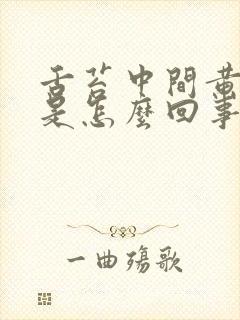 舌苔中間黃
是怎麼回事
一曲殤歌